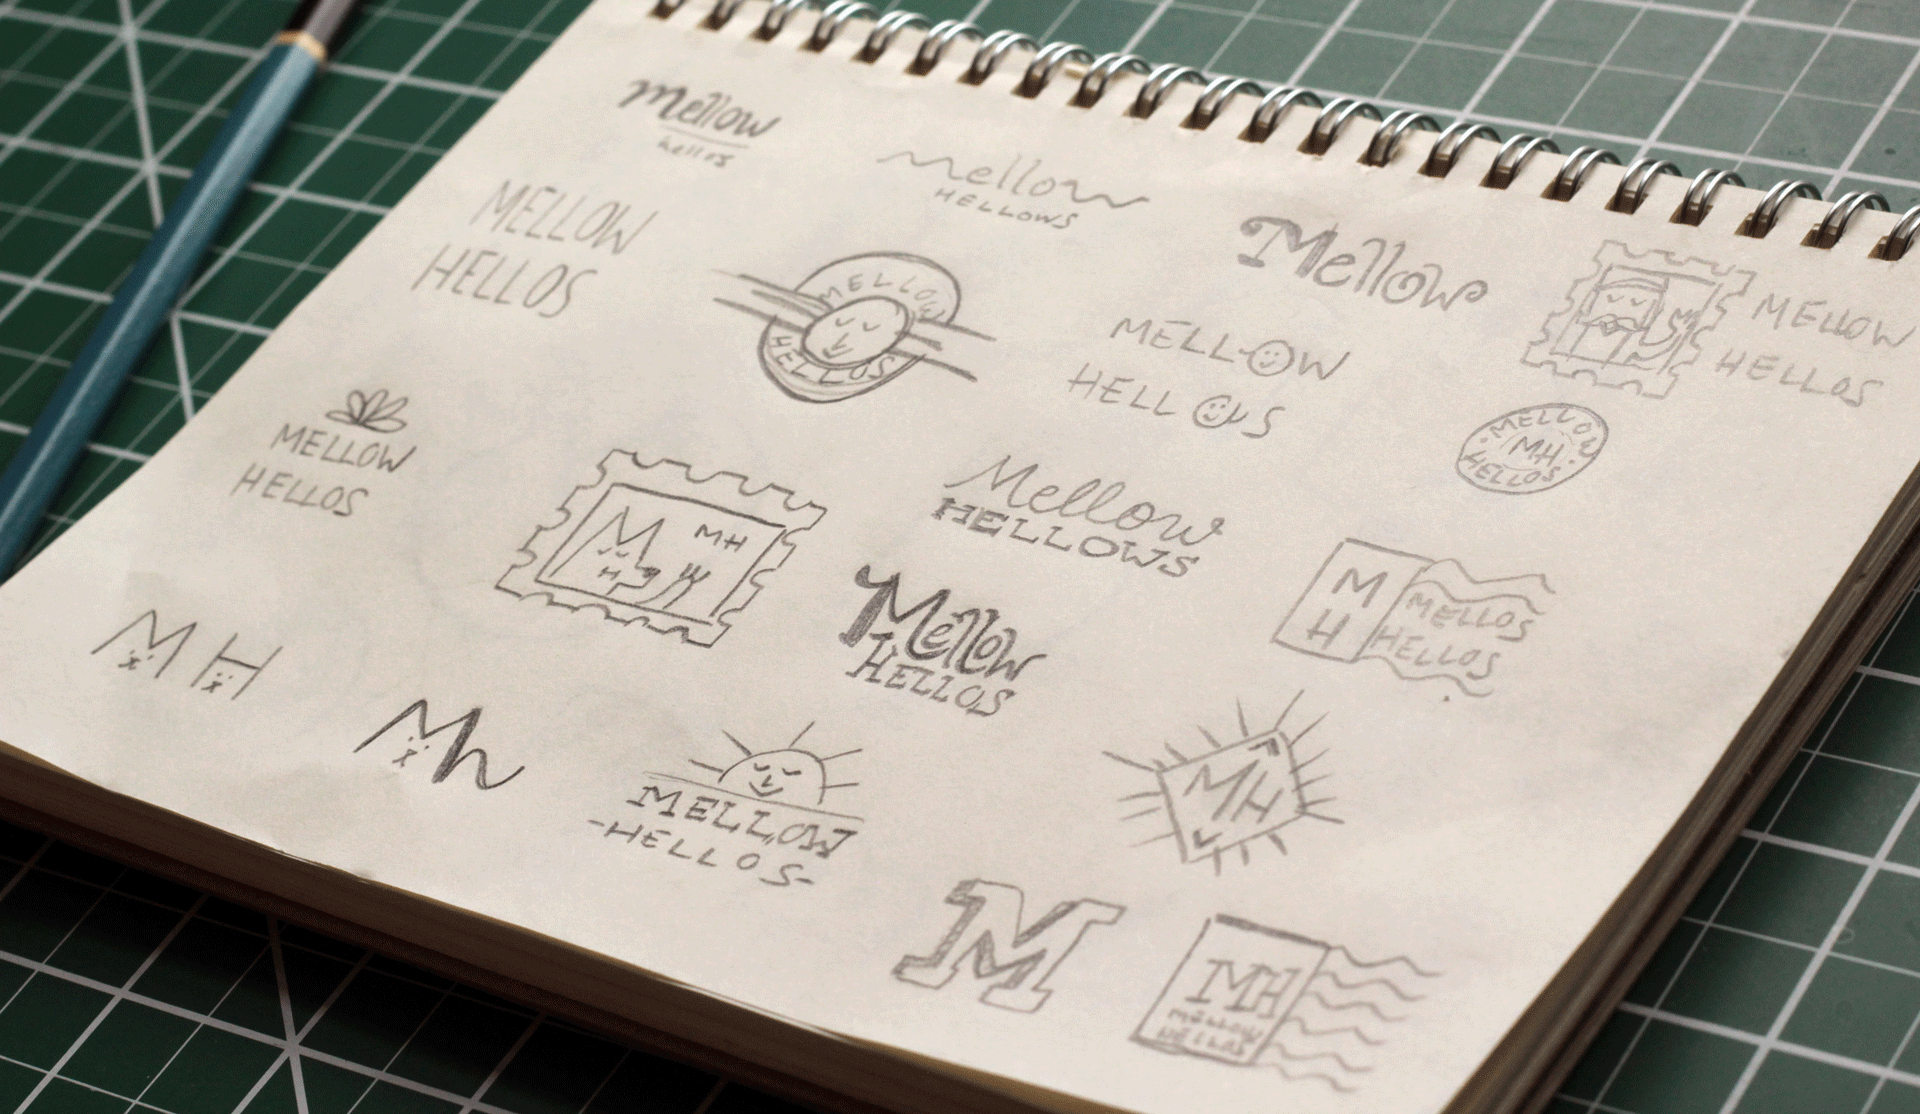 Mellow
hellos
Mellow
HELLOWS
MELLOW
HELLOS
MELLOW
HELLOS
Mellow
MELLOW
HELLOS
M
MELLOW
HELLOS
MELLOW
HELLOS
MELLOW
MH
HELLOS
MELLOW
HELLOS
M
MH
H
Mellow
HELLOWS
Mellow
HELLOS
M
H
MELLOS
HELLOS
M H
Mh
MELLOW
-HELLOS-
MH
M
MH
MELLOW
HELLOS